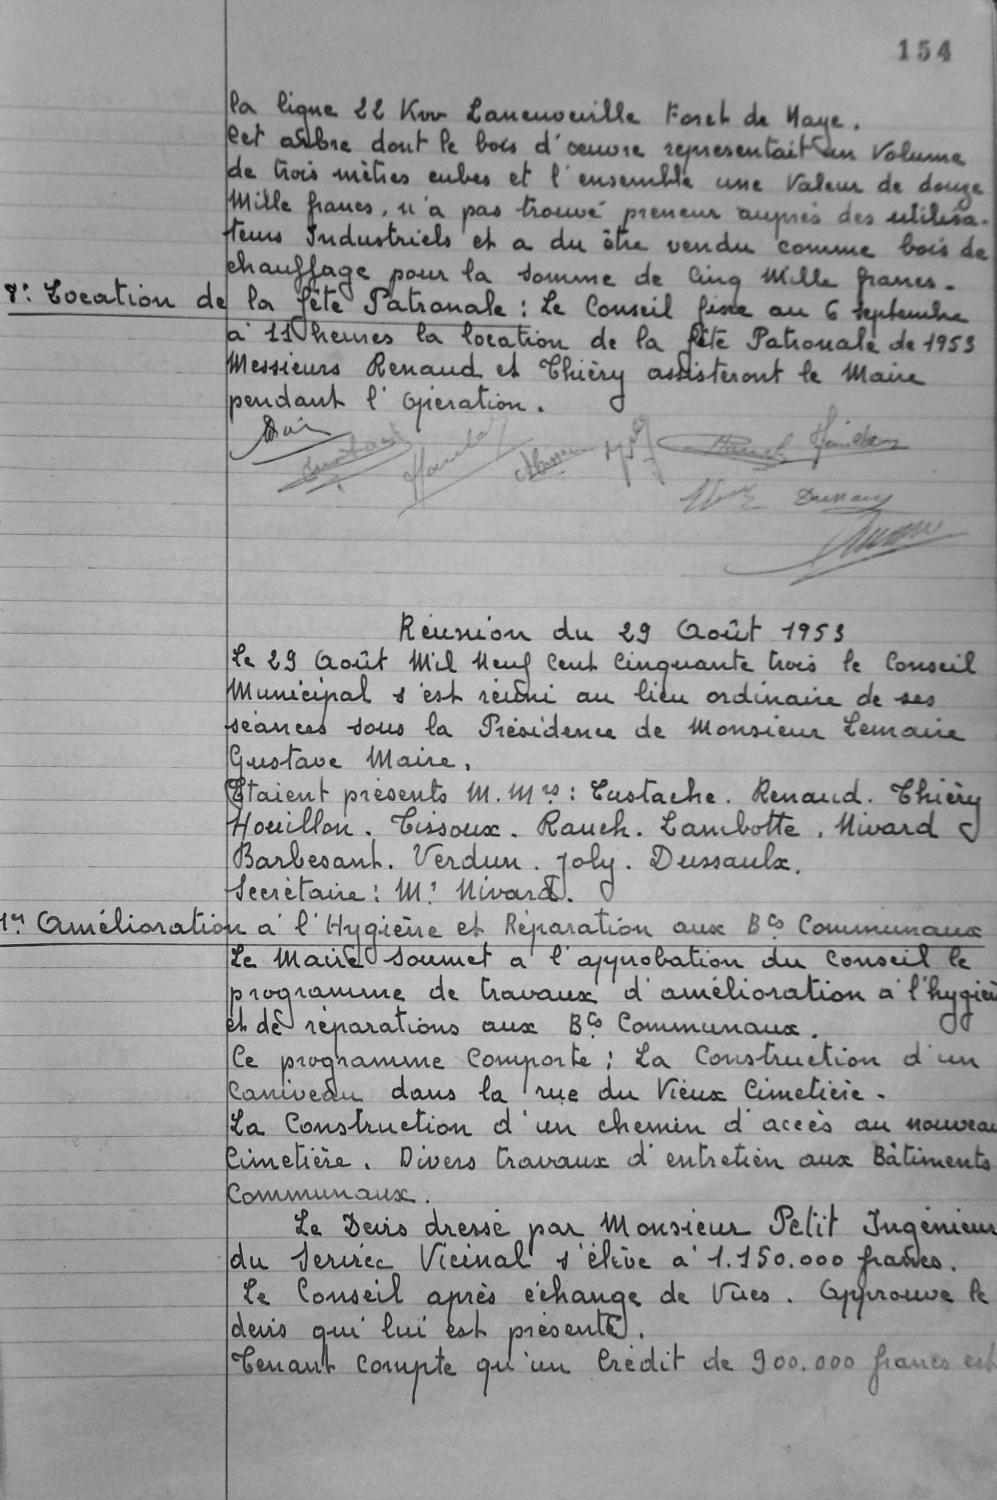 154
la ligne 22 Kvv Laneuveville Foret de Haye.
Cet arbre dont le bois d'œuvre représentait un Volume
de trois mètres cubes et l'ensemble une Valeur de douze
Mille francs, n'a pas trouvé preneur auprès des utilisa-
teurs Industriels et a du être vendu comme bois de
chauffage pour la somme de Cinq Mille francs.
Location de la fête Patronale : Le Conseil fixe au 6 septembre
à 11 heures la location de la fête Patronale de 1953
Messieurs Renaud et Thiéry assisteront le Maire
pendant l'opération.
Réunion du 29 Août 1953
Le 29 Août Mil Neuf Cent Cinquante trois le Conseil
Municipal s'est réuni au lieu ordinaire de ses
séances sous la Présidence de Monsieur Lemaire
Gustave Maire.
Etaient présents M.Mrs : Eustache. Renaud. Thiéry
Houillon. Tissoux. Rauch. Lambotte. Nivard
Barbesant. Verdun. Joly. Dussaulx.
Secrétaire : Mr Nivard.
1er Amélioration à l'Hygiène et Réparation aux Bts Communaux
Le Maire soumet a l'approbation du Conseil le
programme de travaux d'amélioration à l'hygiè
et de réparations aux Bts Communaux.
Ce programme Comporte : La Construction d'un
Caniveau dans la rue du Vieux Cimetière.
La Construction d'un chemin d'accès au nouveau
Cimetière. Divers travaux d'entretien aux Bâtiments
Communaux.
Le Devis dressé par Monsieur Petit Ingénieur
du Service Vicinal s'élève à 1.150.000 francs.
Le Conseil après échange de Vues. Approuve le
devis qui lui est présenté.
Tenant Compte qu'un Crédit de 900.000 francs est